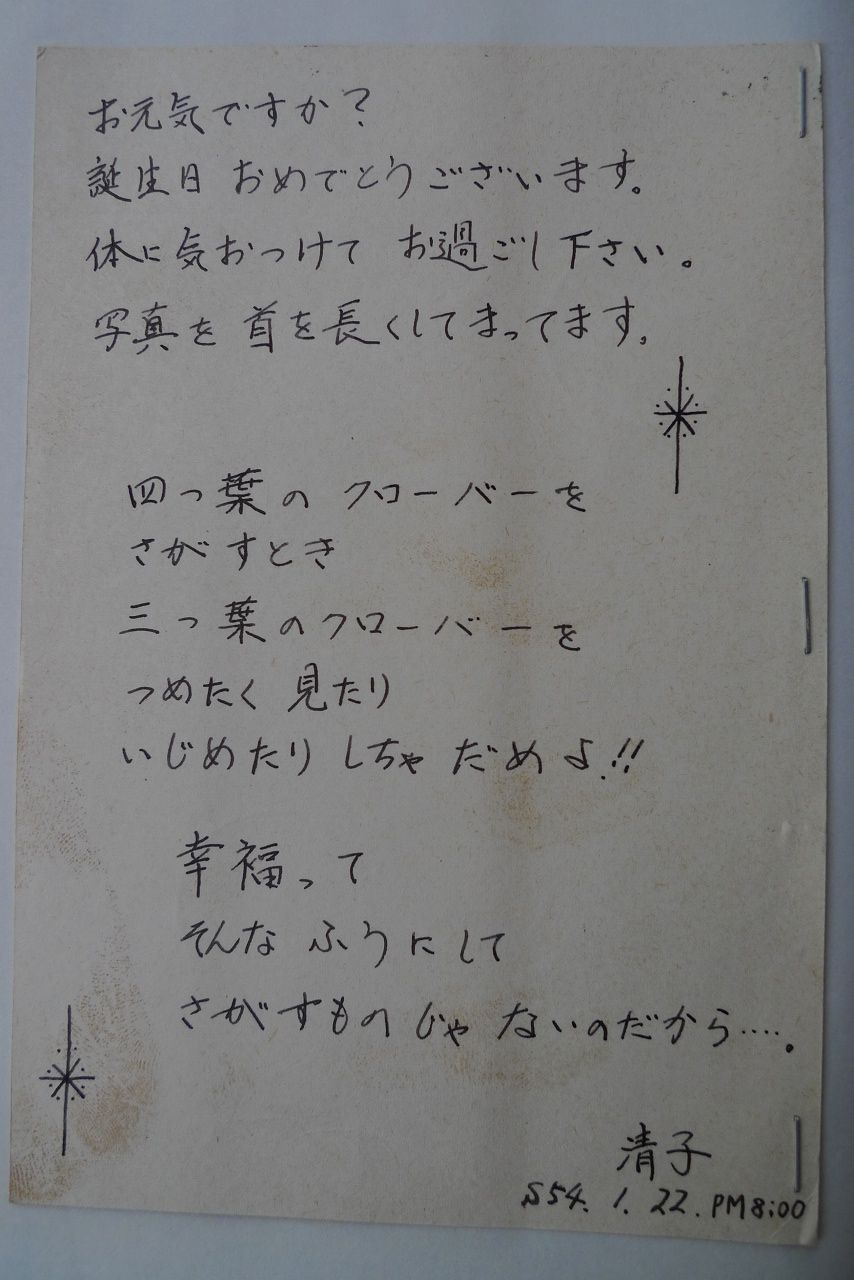 お元気ですか？
誕生日 おめでとうございます。
体に気おつけて お過ごし下さい。
写真を 首を長くしてまってます。
四つ葉の クローバーを
さがすとき
三つ葉のクローバーを
つめたく 見たり
いじめたり しちゃ だめよ!!
幸福って
そんな ふうにして
さがすもの じゃ ないのだから‥‥。
清子
S54. 1. 22. PM8:00